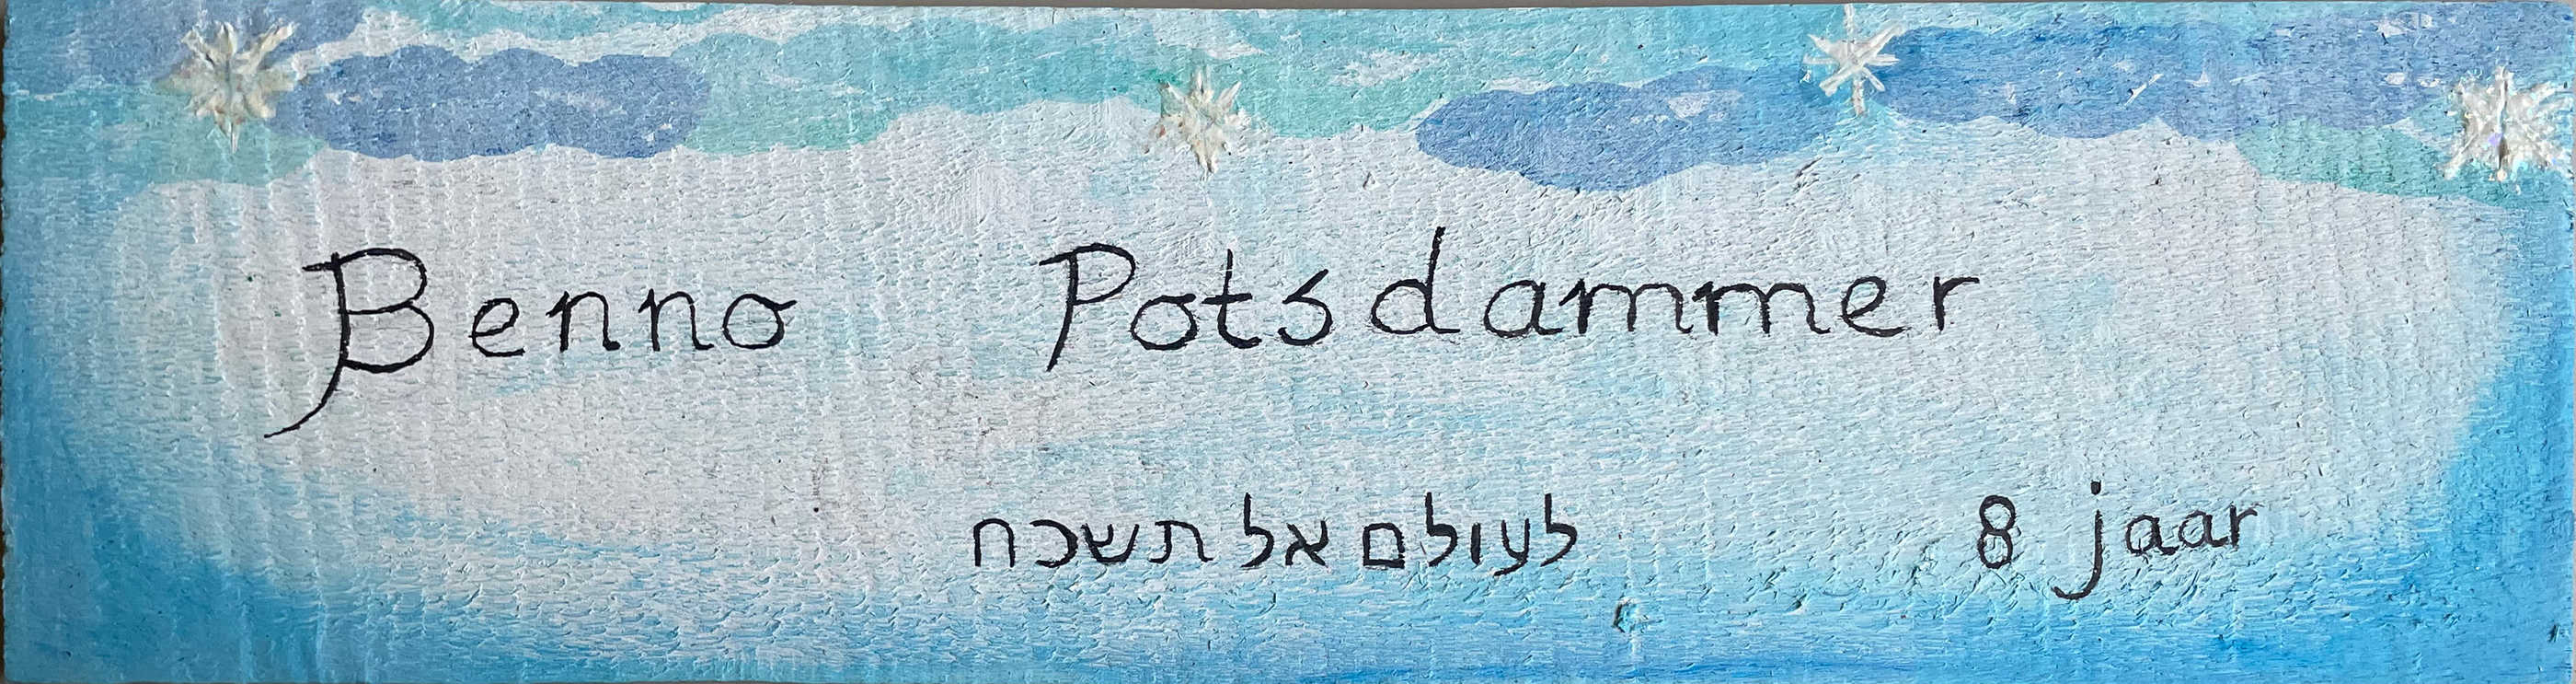 Benno Potsdammer
לעולם אל תשכח 8 jaar